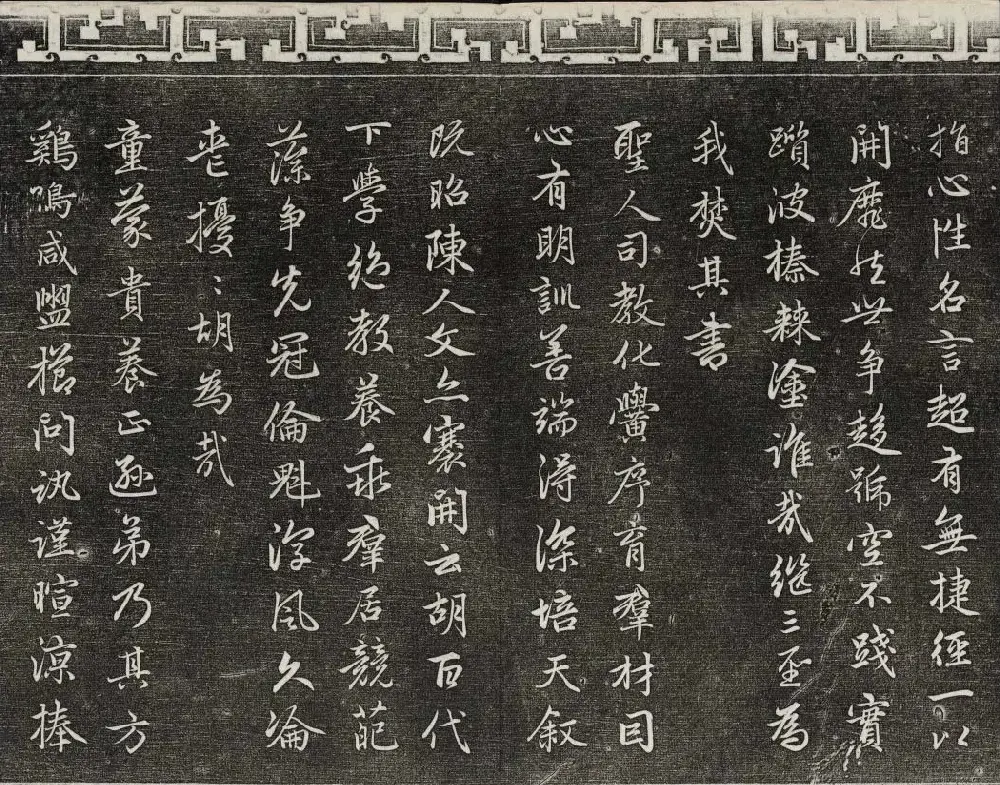 指心性名言超有無捷徑一以
開靡然世争趍號空不踐實
躓彼榛棘塗誰哉繼三聖為
我焚其書
聖人司教化黌序育羣材因
心有明訓善端得深培天叙
既昭陳人文亦褰開云胡百代
下學絶教養乖羣居競葩
藻争先冠倫魁淳風久淪
喪擾〻胡為哉
童蒙貴養正遜弟乃其方
鷄鳴咸盥櫛問訊謹暄凉捧